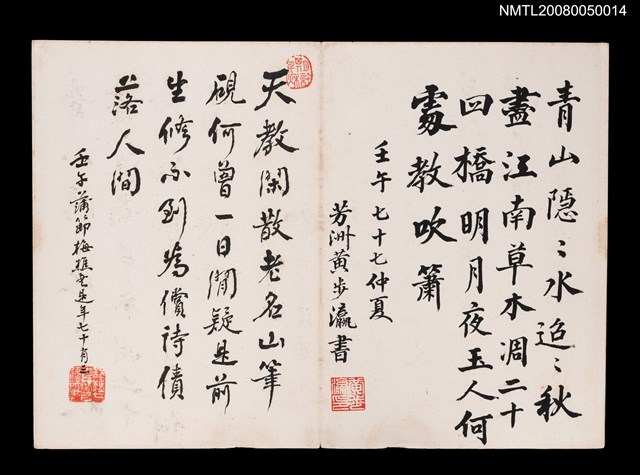 NMTL20080050014
青山隱〻水迢〻秋
盡江南草木凋二十
四橋明月夜玉人何
處教吹簫
壬午七十七仲夏
芳洲黃步瀛書
天教閑散老名山筆
硯何曾一日閒疑是前
生修不到為償詩債
落人間
壬午蒲節梅樵書是年七十有三